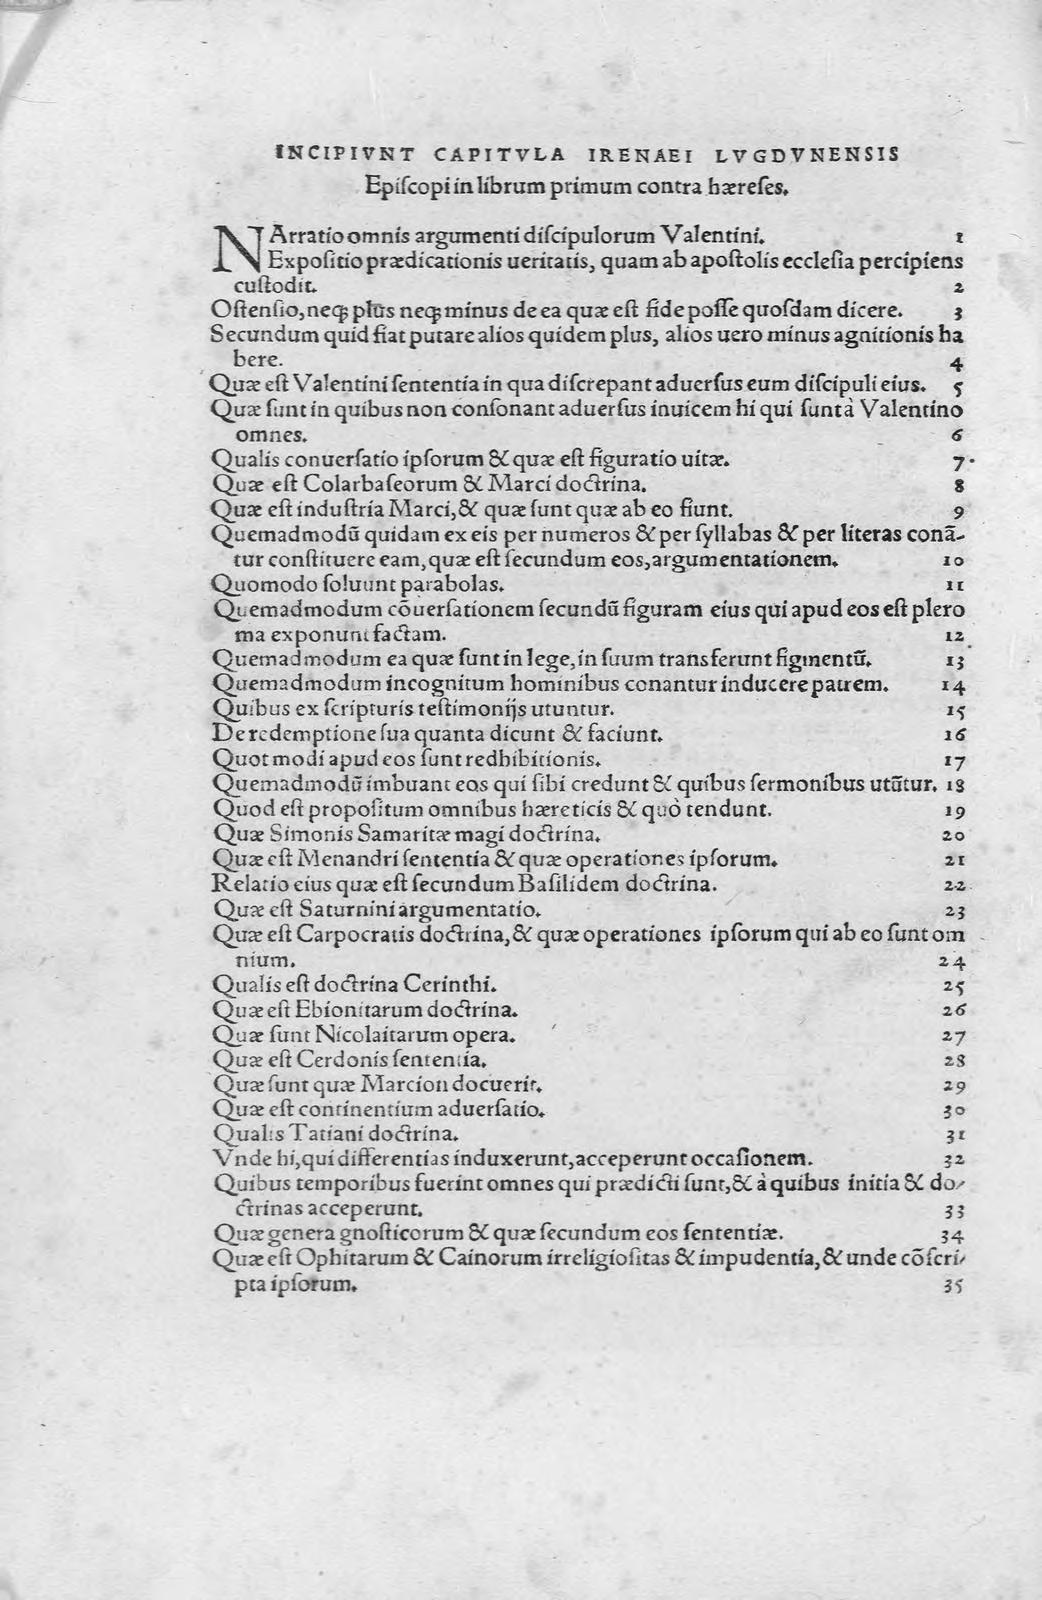 INCIPIVNT CAPITVLA IRENAEI LVGDVNENSIS
Epiſcopi in librum primum contra hæreſes.
NArratio omnis argumenti diſcipulorum Valentini. 1
Expoſitio prædicationis ueritatis, quam ab apoſtolis eccleſia percipiens
cuſtodit. 2
Oſtenſio, neqꝫ plus neqꝫ minus de ea quæ eſt fide poſſe quoſdam dicere. 3
Secundum quid fiat putare alios quidem plus, alios uero minus agnitionis ha
bere. 4
Quæ eſt Valentini ſententia in qua diſcrepant aduerſus eum diſcipuli eius. 5
Quæ ſunt in quibus non conſonant aduerſus inuicem hi qui ſunt à Valentino
omnes. 6
Qualis conuerſatio ipſorum & quæ eſt figuratio uitæ. 7
Quæ eſt Colarbaſeorum & Marci doctrina. 8
Quæ eſt induſtria Marci, & quæ ſunt quæ ab eo fiunt. 9
Quemadmodū quidam ex eis per numeros & per ſyllabas & per literas conā-
tur conſtituere eam, quæ eſt ſecundum eos, argumentationem. 10
Quomodo ſoluunt parabolas. 11
Quemadmodum cōuerſationem ſecundū figuram eius qui apud eos eſt plero
ma exponunt factam. 12
Quemadmodum ea quæ ſunt in lege, in ſuum transferunt figmentū. 13
Quemadmodum incognitum hominibus conantur inducere patrem. 14
Quibus ex ſcripturis teſtimonijs utuntur. 15
De redemptione ſua quanta dicunt & faciunt. 16
Quot modi apud eos ſunt redhibitionis. 17
Quemadmodū imbuant eos qui ſibi credunt & quibus ſermonibus utūtur. 18
Quod eſt propoſitum omnibus hæreticis & quò tendunt. 19
Quæ Simonis Samaritæ magi doctrina. 20
Quæ eſt Menandri ſententia & quæ operationes ipſorum. 21
Relatio eius quæ eſt ſecundum Baſilidem doctrina. 22
Quæ eſt Saturnini argumentatio. 23
Quæ eſt Carpocratis doctrina, & quæ operationes ipſorum qui ab eo ſunt om
nium. 24
Qualis eſt doctrina Cerinthi. 25
Quæ eſt Ebionitarum doctrina. 26
Quæ ſunt Nicolaitarum opera. 27
Quæ eſt Cerdonis ſententia. 28
Quæ ſunt quæ Marcion docuerit. 29
Quæ eſt continentium aduerſatio. 30
Qualis Tatiani doctrina. 31
Vnde hi, qui differentias induxerunt, acceperunt occaſionem. 32
Quibus temporibus fuerint omnes qui prædicti ſunt, & à quibus initia & do-
ctrinas acceperunt. 33
Quæ genera gnoſticorum & quæ ſecundum eos ſententiæ. 34
Quæ eſt Ophitarum & Cainorum irreligioſitas & impudentia, & unde cōſcri-
pta ipſorum. 35